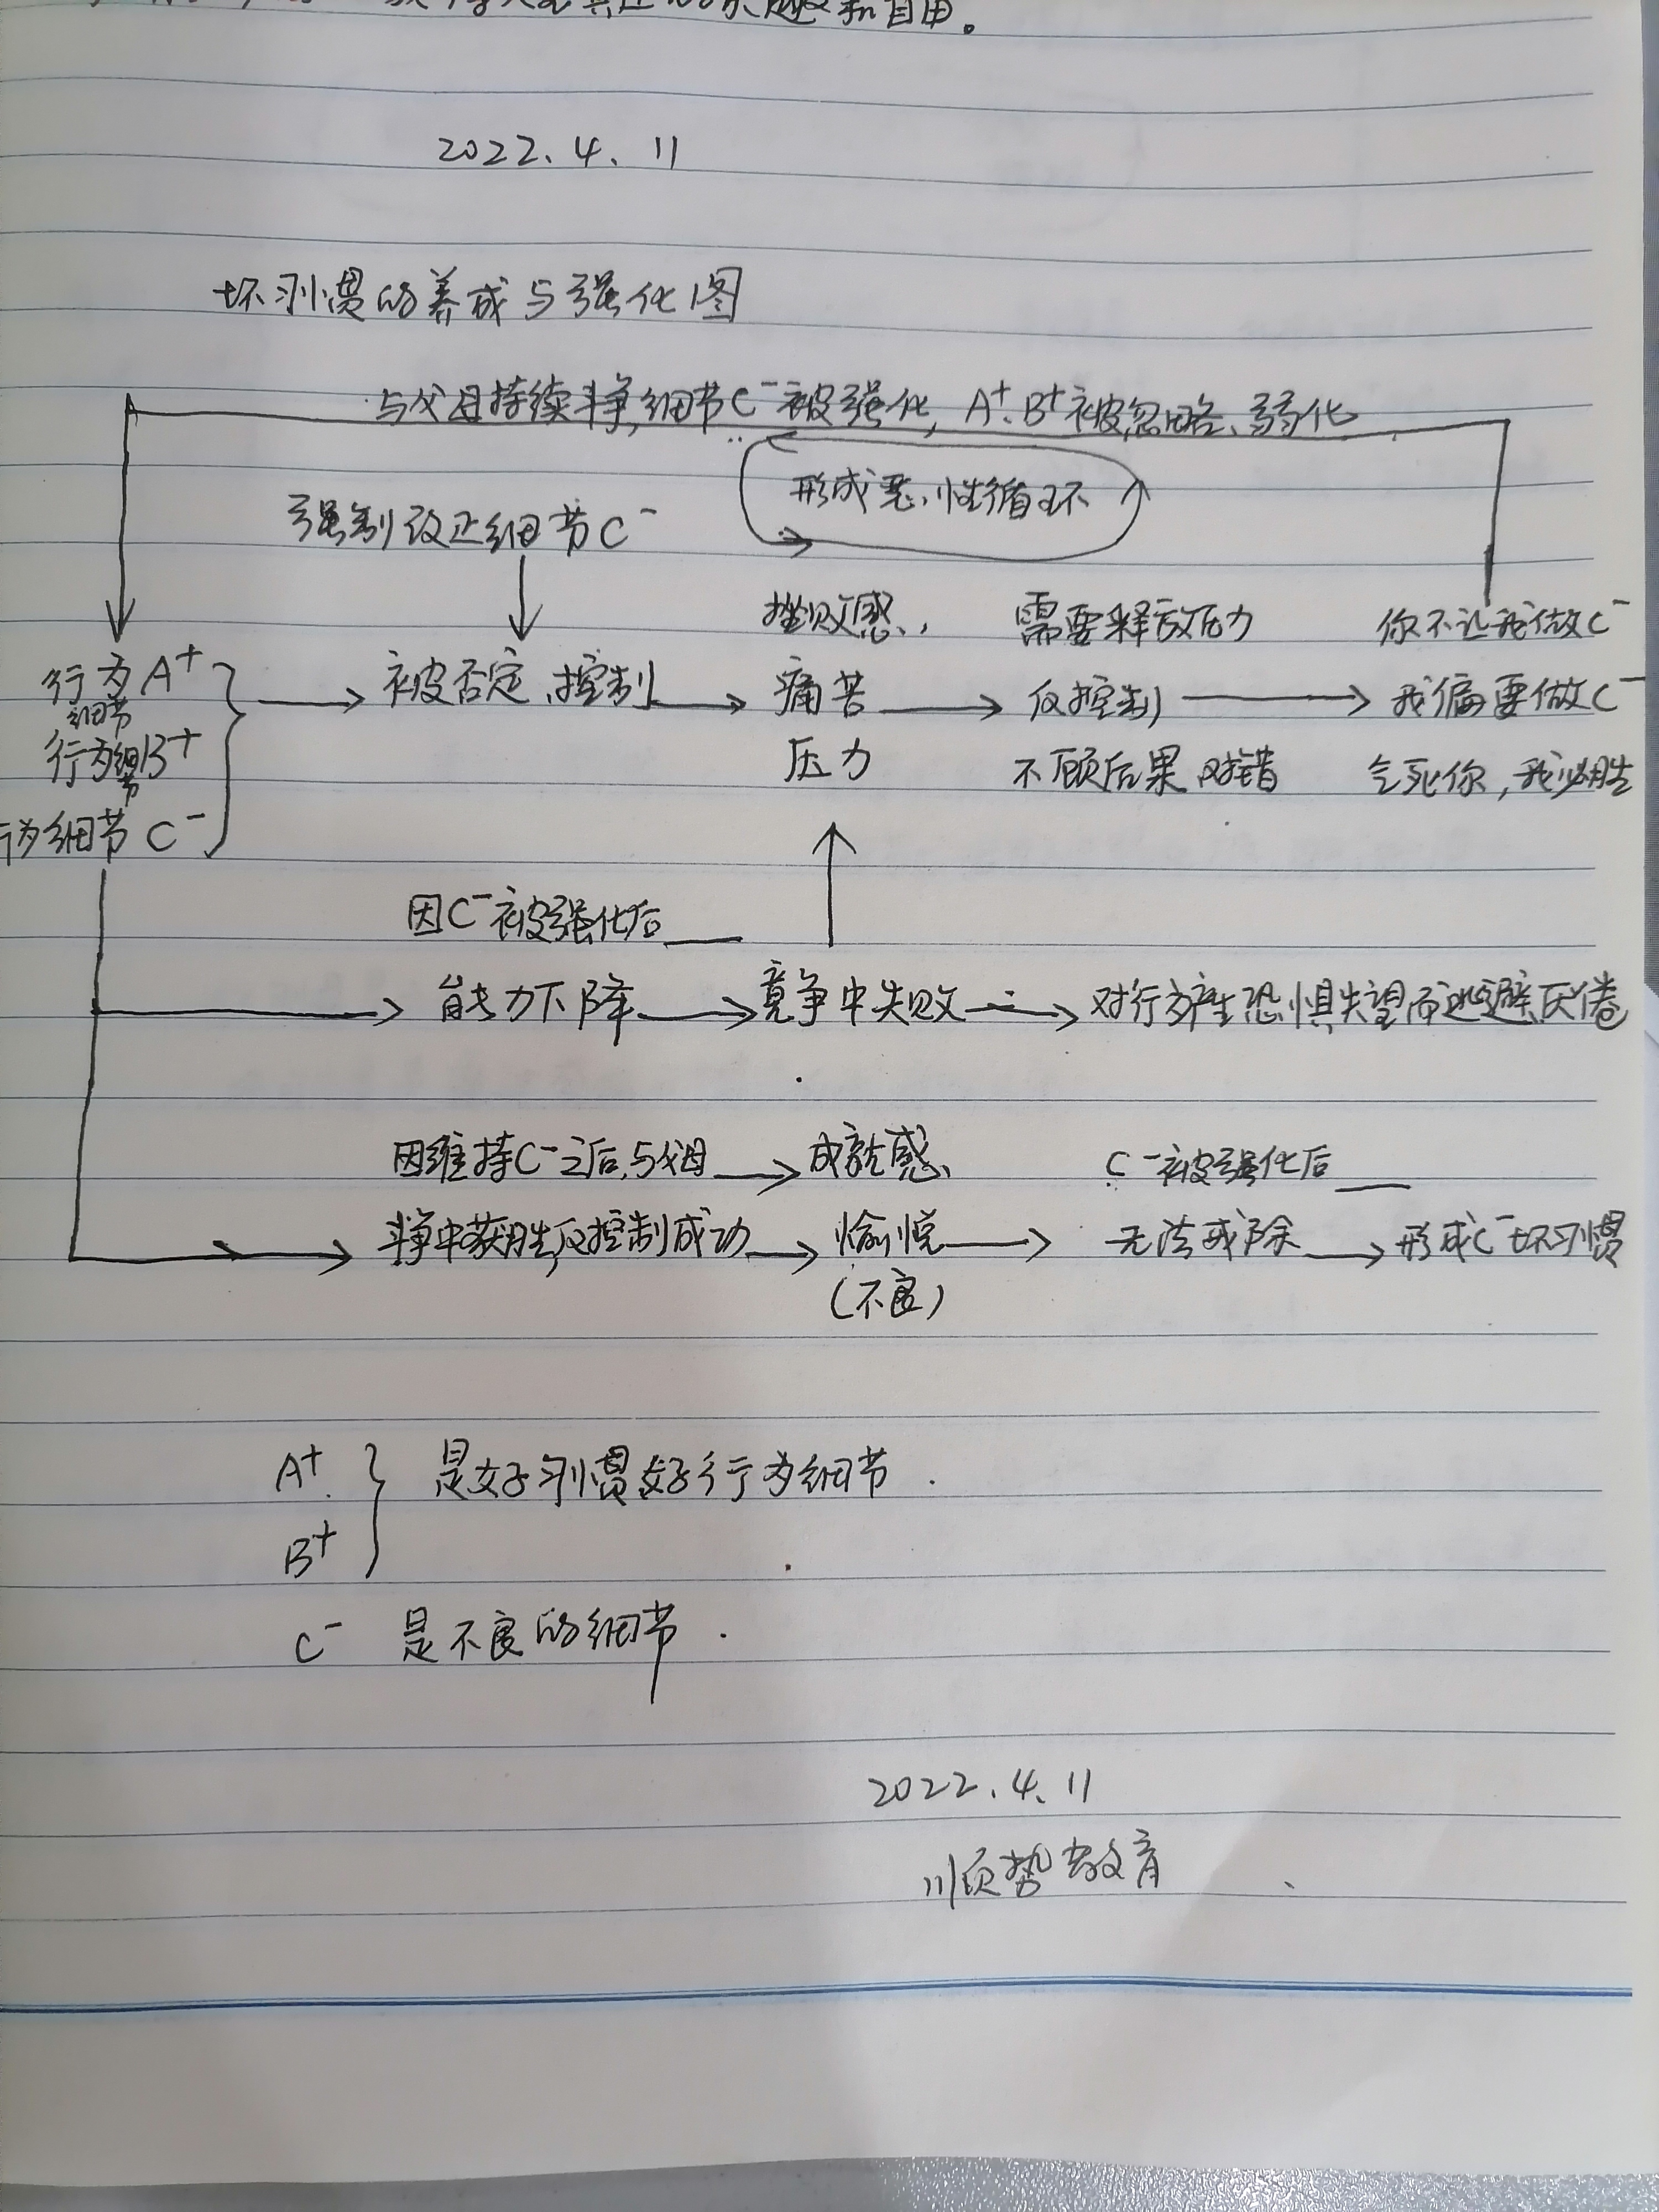 和自由。
2022、4、11
坏习惯的养成与强化图
与父母持续斗争,细节C⁻被强化,A⁺、B⁺被忽略、弱化
形成恶性循环
强制改正细节C⁻
挫败感、 需要释放压力 你不让我做C⁻
行为A⁺ 被否定、控制 痛苦 反控制 我偏要做C⁻
细节
行为细节B⁺ 压力 不顾后果、对错 气死你,我必胜
行为细节C⁻
因C⁻被强化后
能力下降 竞争中失败 对行为产生恐惧失望而逃避、厌倦
因维持C⁻之后,与父母 成就感、 C⁻被强化后
斗争中获胜,反控制成功 愉悦 无法戒除 形成C⁻坏习惯
(不良)
A⁺ 是好习惯好行为细节.
B⁺
C⁻ 是不良的细节.
2022、4、11
顺势教育